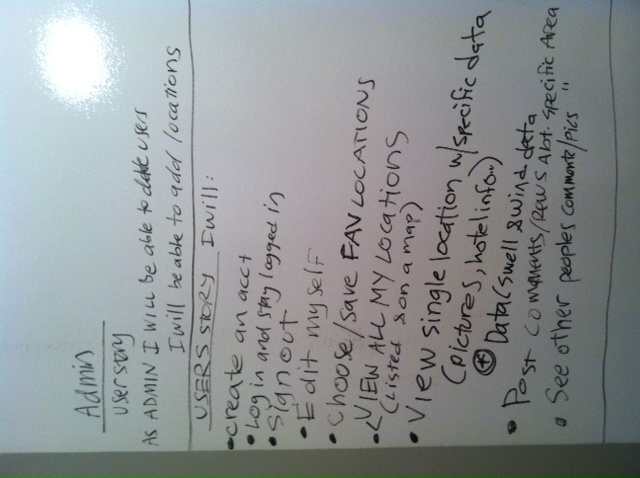 Admin
User story
AS ADMIN I will be able to delete users
I will be able to add locations
USERS STORY I will:
• create an acct
• Log in and stay logged in
• Sign out
• Edit myself
• Choose/save FAV LOCATIONS
• VIEW ALL MY LOCATIONS
(Listed & on a map)
• View single location w/specific data
(pictures, hotel info...)
* Data (swell & wind data
• Post comments/Revws Abt. specific Area
• See other peoples comments/pics "